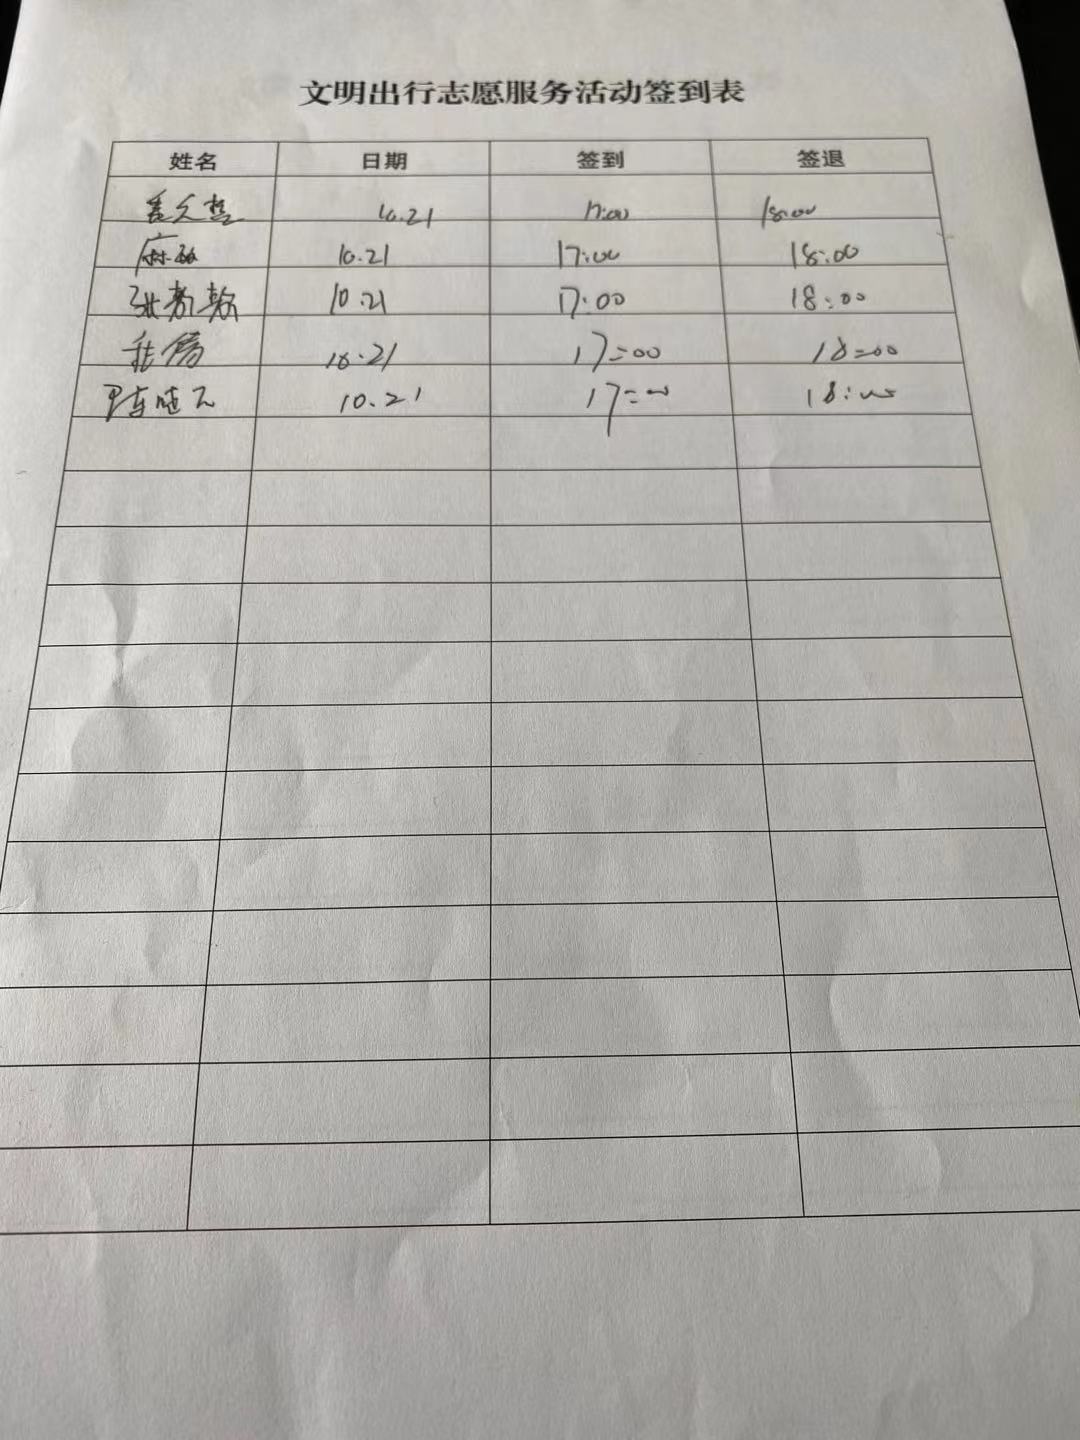 文明出行志愿服务活动签到表
姓名 日期 签到 签退
10.21 17:00 18:00
麻 10.21 17:00 18:00
张 10.21 17:00 18:00
10.21 17:00 18:00
10.21 17:00 18:00